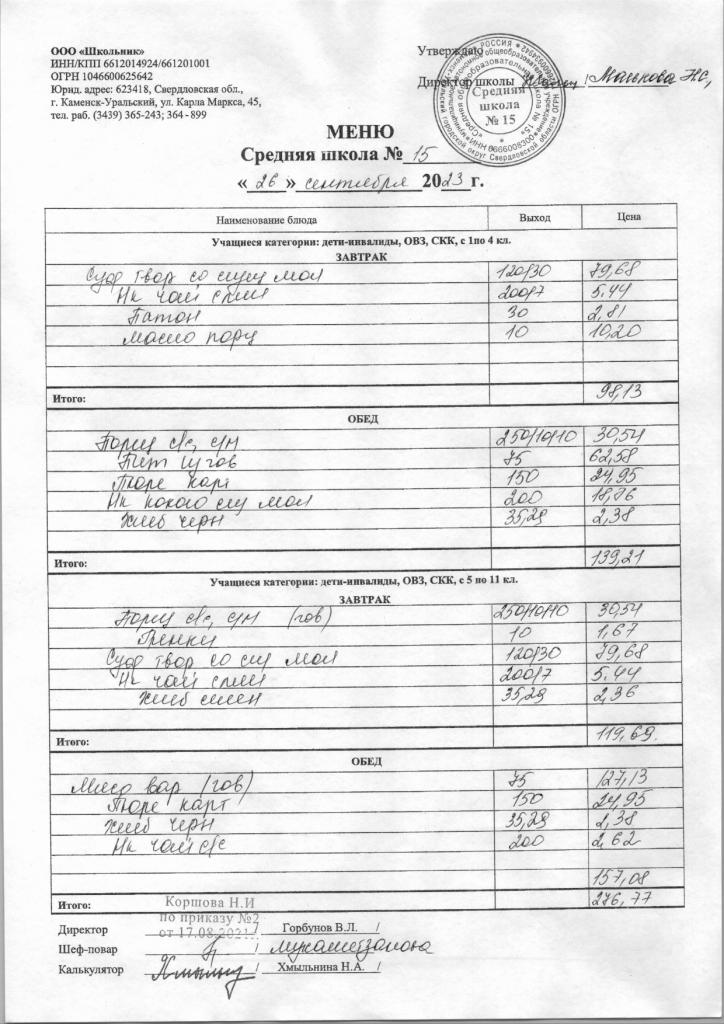 ООО «Школьник»
ИНН/КПП 6612014924/661201001
ОГРН 1046600625642
Юрид. адрес: 623418, Свердловская обл.,
г. Каменск-Уральский, ул. Карла Маркса, 45,
тел. раб. (3439) 365-243; 364 - 899
Утверждаю
Директор школы / Машкова Н.С,
Средняя
школа
№ 15
МЕНЮ
Средняя школа № 15
« 26 » сентября 2023 г.
Наименование блюда Выход Цена
Учащиеся категории: дети-инвалиды, ОВЗ, СКК, с 1по 4 кл.
ЗАВТРАК
Суф твор со сгущ мол 120/30 79,68
Нк чай слим 200/7 5.44
Батон 30 2,81
Масло порц 10 10,20
Итого: 98,13
ОБЕД
Борщ с/с, с/м 250/10/10 30,54
75 62,58
Пюре карт 150 24,95
Нк какао сгу мол 200 18,76
Хлеб черн 35,29 2,38
Итого: 139,21
Учащиеся категории: дети-инвалиды, ОВЗ, СКК, с 5 по 11 кл.
ЗАВТРАК
Борщ с/с, с/м (гов) 250/10/10 30,54
Гренки 10 1,67
Суф твор со сгу мол 120/30 79,68
Нк чай слим 200/7 5.44
Хлеб 35,29 2,36
Итого: 119,69.
ОБЕД
Мясо вар (гов) 75 127,13
Пюре карт 150 24,95
Хлеб черн 35,29 2,38
Нк чай с/с 200 2,62
157,08
Итого: 276,77
Коршова Н.И
по приказу №2
от 17.08.2021
Директор / Горбунов В.Л. /
Шеф-повар / Мухаметзянова
Калькулятор / Хмыльнина Н.А. /